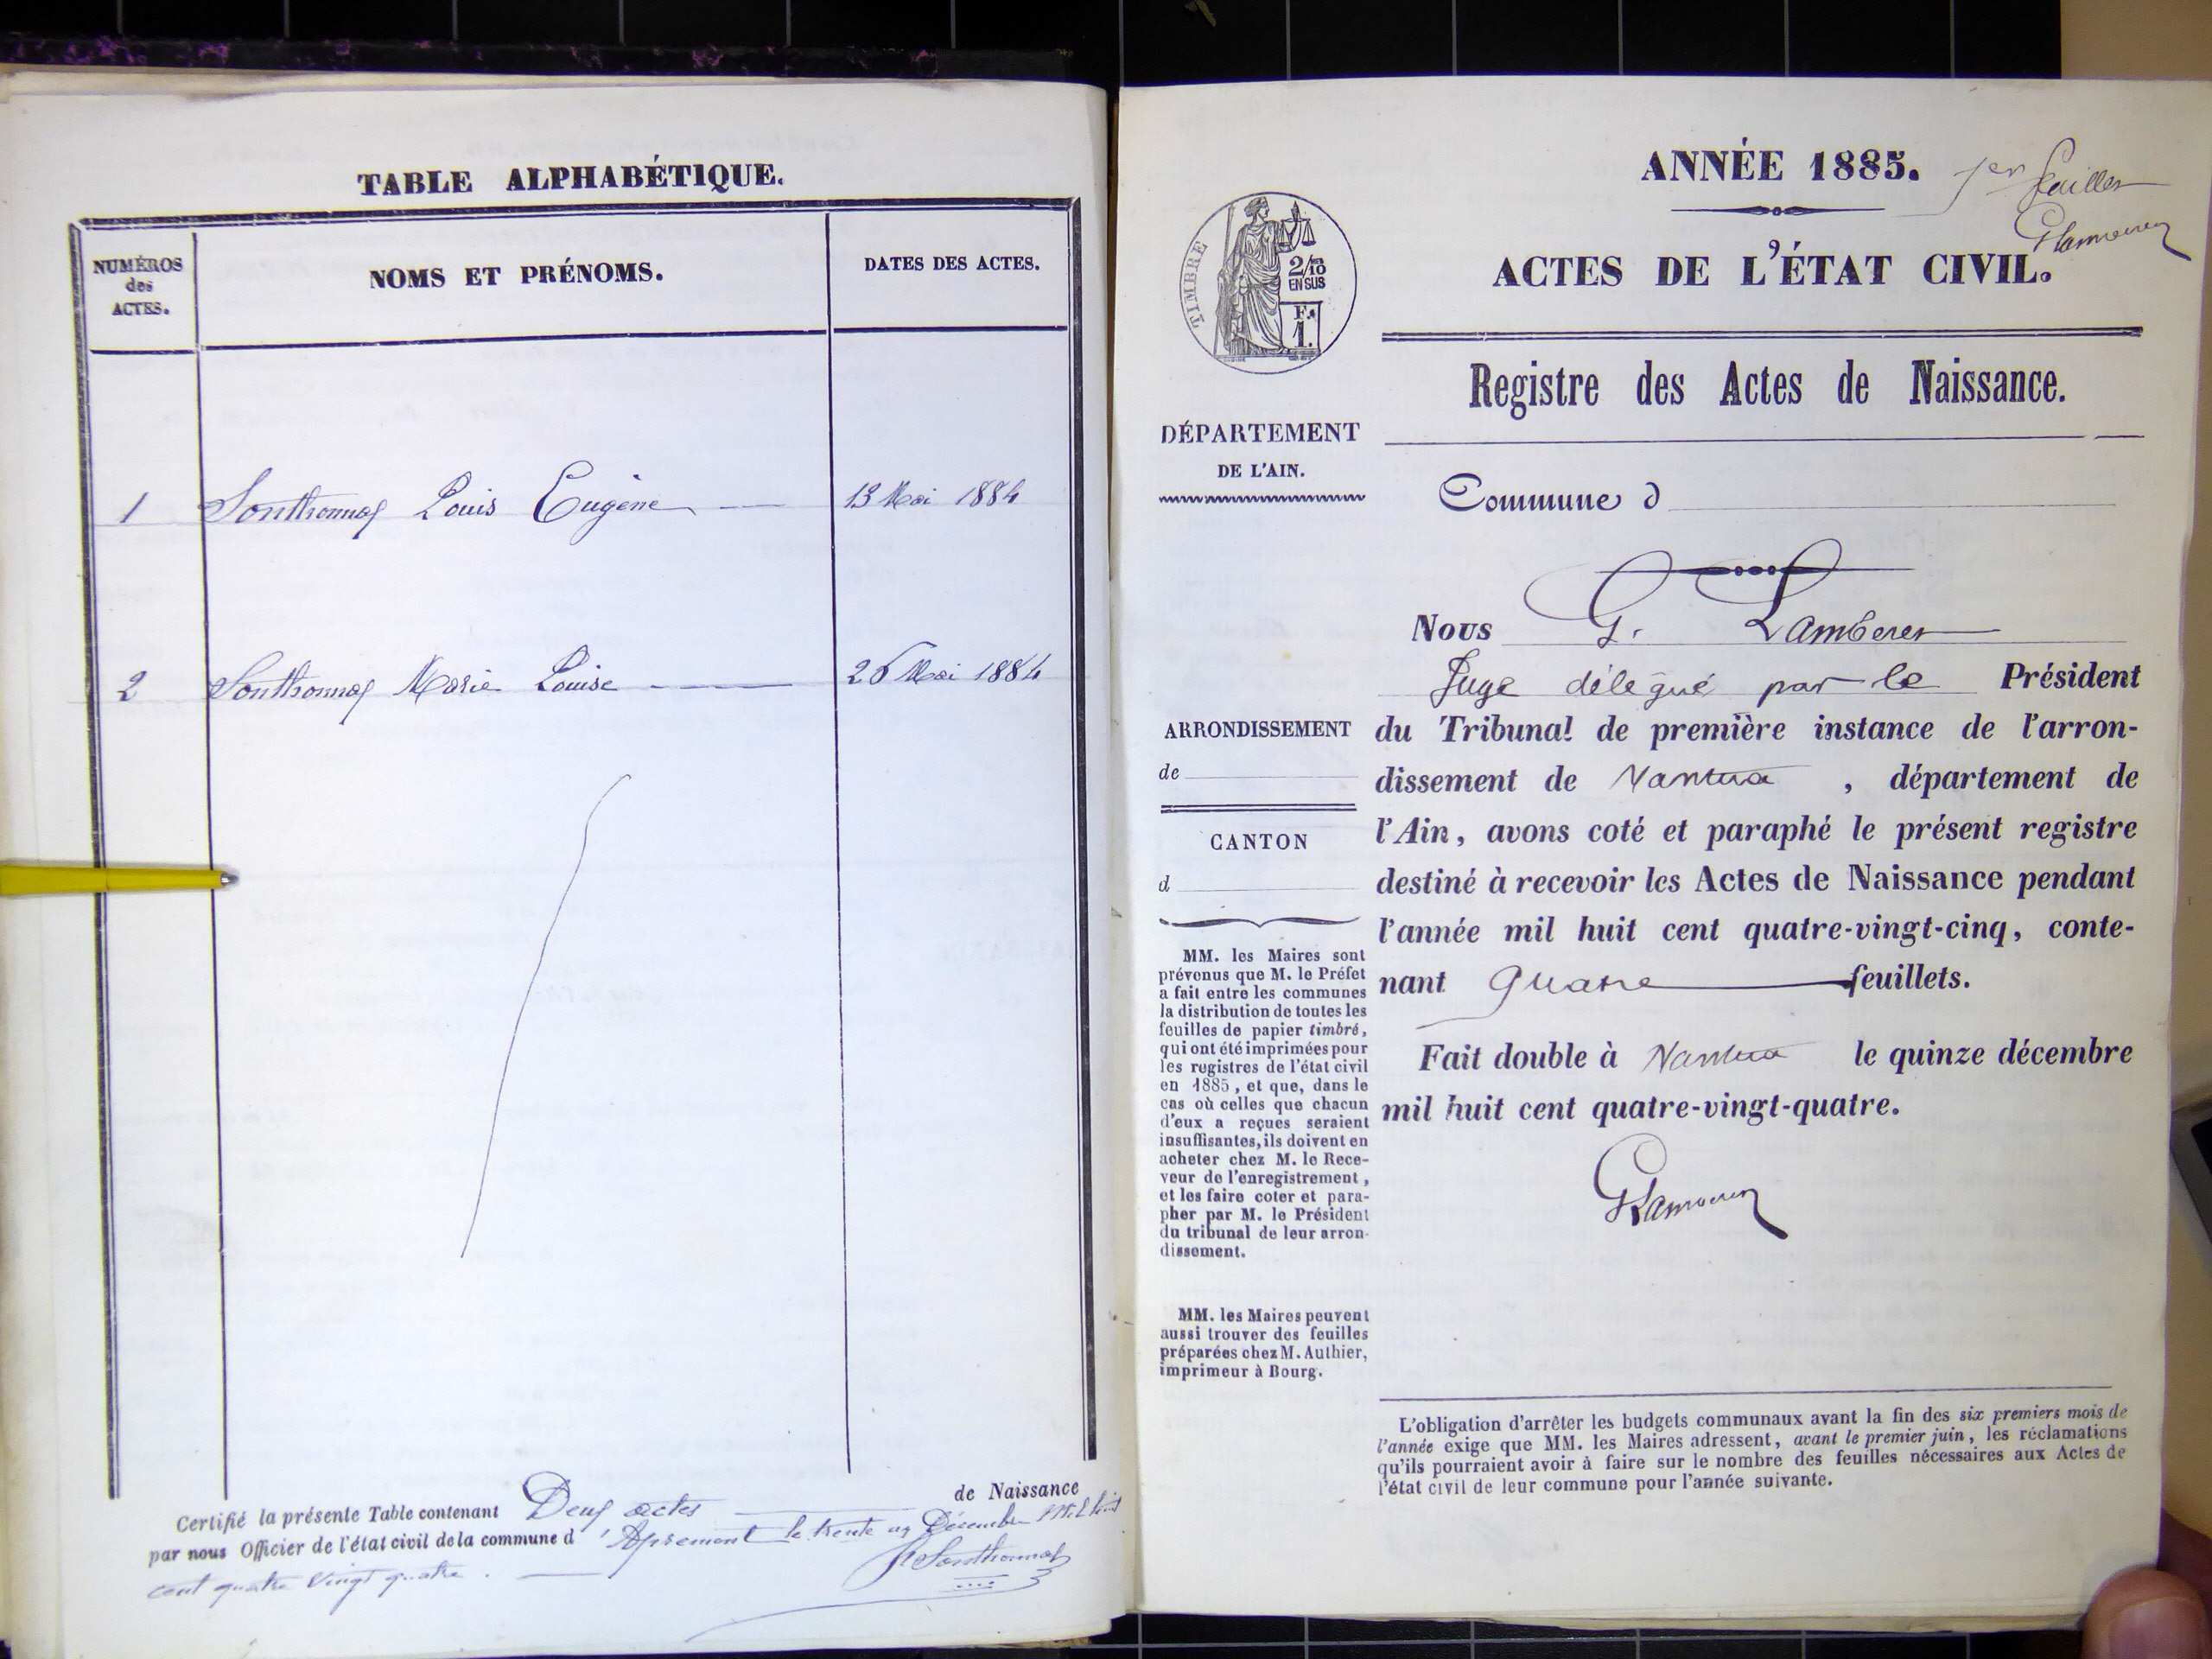 TABLE ALPHABÉTIQUE.
NUMÉROS
des
ACTES.
NOMS ET PRÉNOMS.
DATES DES ACTES.
1 Sonthonnax Louis Eugène 13 Mai 1884
2 Sonthonnax Marie Louise 26 Mai 1884
Certifié la présente Table contenant Deux actes de Naissance
par nous Officier de l'état civil de la commune d'Apremont le trente un Décembre Mil huit
cent quatre vingt quatre.
Sonthonnax
ANNÉE 1885.
1er feuillet
ACTES DE L'ÉTAT CIVIL.
TIMBRE
2/10
EN SUS
F.
1.
Registre des Actes de Naissance.
DÉPARTEMENT
DE L'AIN.
Commune d
Nous G.
Juge délégué par le Président
ARRONDISSEMENT
de
CANTON
d
du Tribunal de première instance de l'arron-
dissement de Nantua, département de
l'Ain, avons coté et paraphé le présent registre
destiné à recevoir les Actes de Naissance pendant
l'année mil huit cent quatre-vingt-cinq, conte-
nant quatre feuillets.
Fait double à Nantua le quinze décembre
mil huit cent quatre-vingt-quatre.
MM. les Maires sont
prévenus que M. le Préfet
a fait entre les communes
la distribution de toutes les
feuilles de papier timbré,
qui ont été imprimées pour
les registres de l'état civil
en 1885, et que, dans le
cas où celles que chacun
d'eux a reçues seraient
insuffisantes, ils doivent en
acheter chez M. le Rece-
veur de l'enregistrement,
et les faire coter et para-
pher par M. le Président
du tribunal de leur arron-
dissement.
MM. les Maires peuvent
aussi trouver des feuilles
préparées chez M. Authier,
imprimeur à Bourg.
L'obligation d'arrêter les budgets communaux avant la fin des six premiers mois de
l'année exige que MM. les Maires adressent, avant le premier juin, les réclamations
qu'ils pourraient avoir à faire sur le nombre des feuilles nécessaires aux Actes de
l'état civil de leur commune pour l'année suivante.